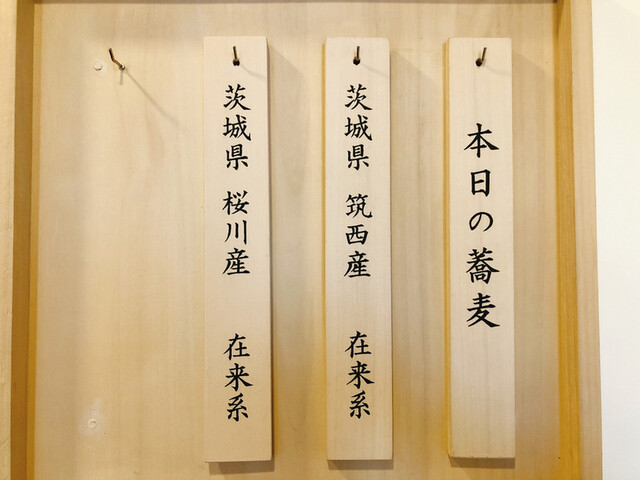 本日の蕎麦
茨城県 筑西産 在来系
茨城県 桜川産 在来系